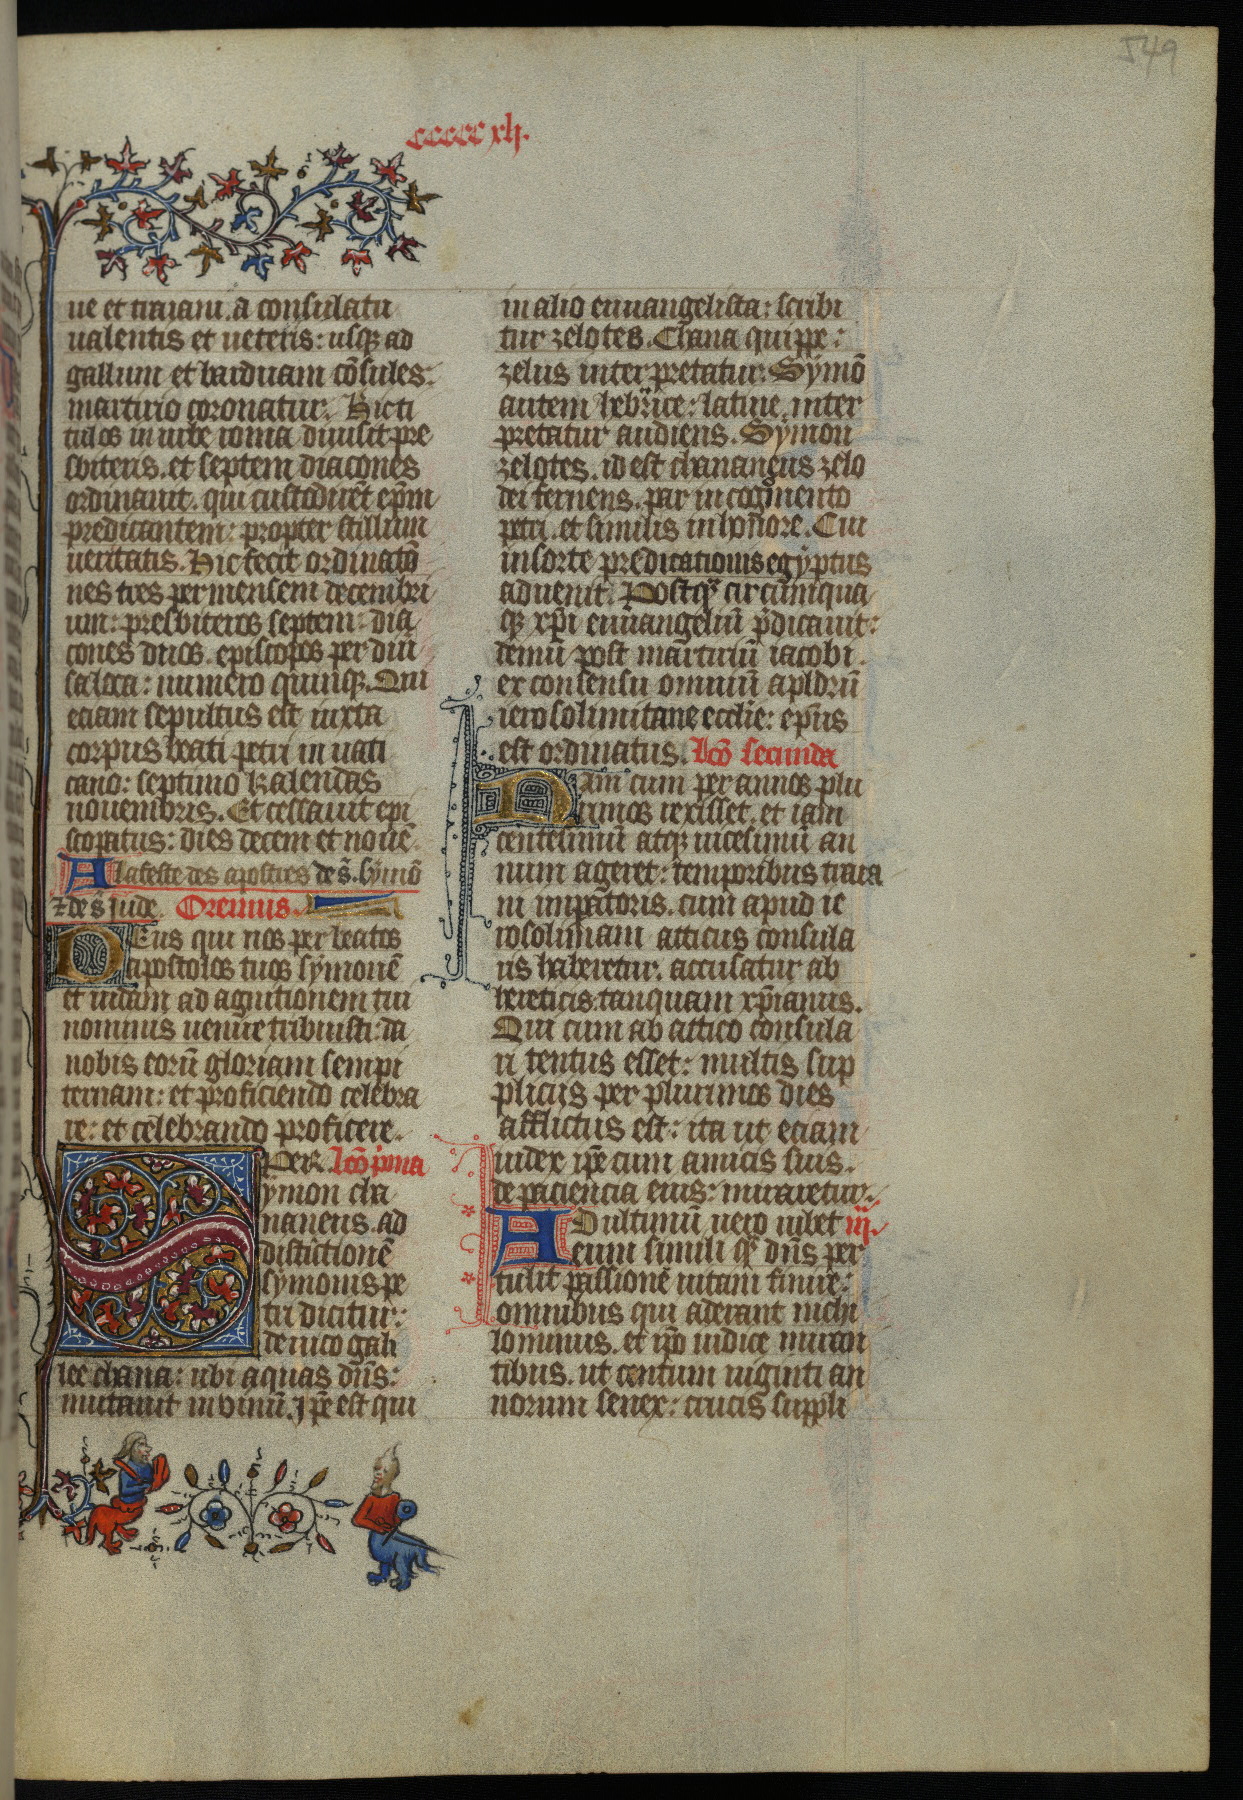 549
ccccc xli.
ue et traiani. a consulatu
ualentis et ueteris: usqȝ ad
gallum et barduam cōsules:
martirio coronatur. Hic ti
tulos in urbe roma diuisit pre
sbiteris. et septem diacones
ordinauit. qui custodirēt ep̄m
predicantem: propter stilum
ueritatis. Hic fecit ordinatō
nes tres per mensem decembri
um: presbiteros septem: dia
cones duos. episcopos per diu
sa loca: numero quinqȝ. Qui
etiam sepultus est iuxta
corpus beati petri in uati
cano: septimo kalendas
nouembris. Et cessauit epi
scopatus: dies decem et nouē.
A la feste des apostres de s̄. symō
⁊ de s̄ iude. Oremus.
Deus qui nos per beatos
apostolos tuos symonē
et iudam ad agnitionem tui
nominis uenire tribuisti: da
nobis eorū gloriam sempi
ternam: et proficiendo celebra
re: et celebrando proficere.
Per. Lcō p̄ma
Symon cha
naneus. ad
distictionē
symonis pe
tri dicitur:
de uico gali
lee chana: ubi aquas dn̄s:
mutauit in vinū. Ip̄e est qui
in alio euuangelista: scribi
tur zelotes. Chana quippe:
zelus interpretatur. Symō
autem hebrice: latine inter
pretatur audiens. Symon
zelotes. id est chananeus zelo
dei feruens. par in cognmento
petri. et similis in hōnore. Cui
in sorte predicationis egyptus
aduenit. Postqȝ circumqua
qȝ xp̄i euuangeliū p̄dicauit:
demū post martiriū iacobi.
ex consensu omniū apl̄orū
ierosolimitane ecclīe: ep̄us
est ordinatus. Lcō secunda
Nam cum per annos plu
rimos rexisset. et iam
centesimū atqȝ uicesimū an
num ageret: temporibus traia
ni impatoris. cum apud ie
rosolimam atticus consula
ris haberetur. accusatur ab
hereticis: tanquam xp̄ianus.
Qui cum ab attico consula
ri tentus esset: multis sup
pliciis per plurimos dies
afflictus est: ita ut etiam
iudex ip̄e cum amicis suis.
de paciencia eius: miraretur.
Ad ultimū uero iubet iij.
eum simili qȝ dn̄s per
tulit passionē uitam finire:
omnibus qui aderant nichi
lominus. et ip̄o iudice miran
tibus. ut centum uiginti an
norum senex: crucis suppli